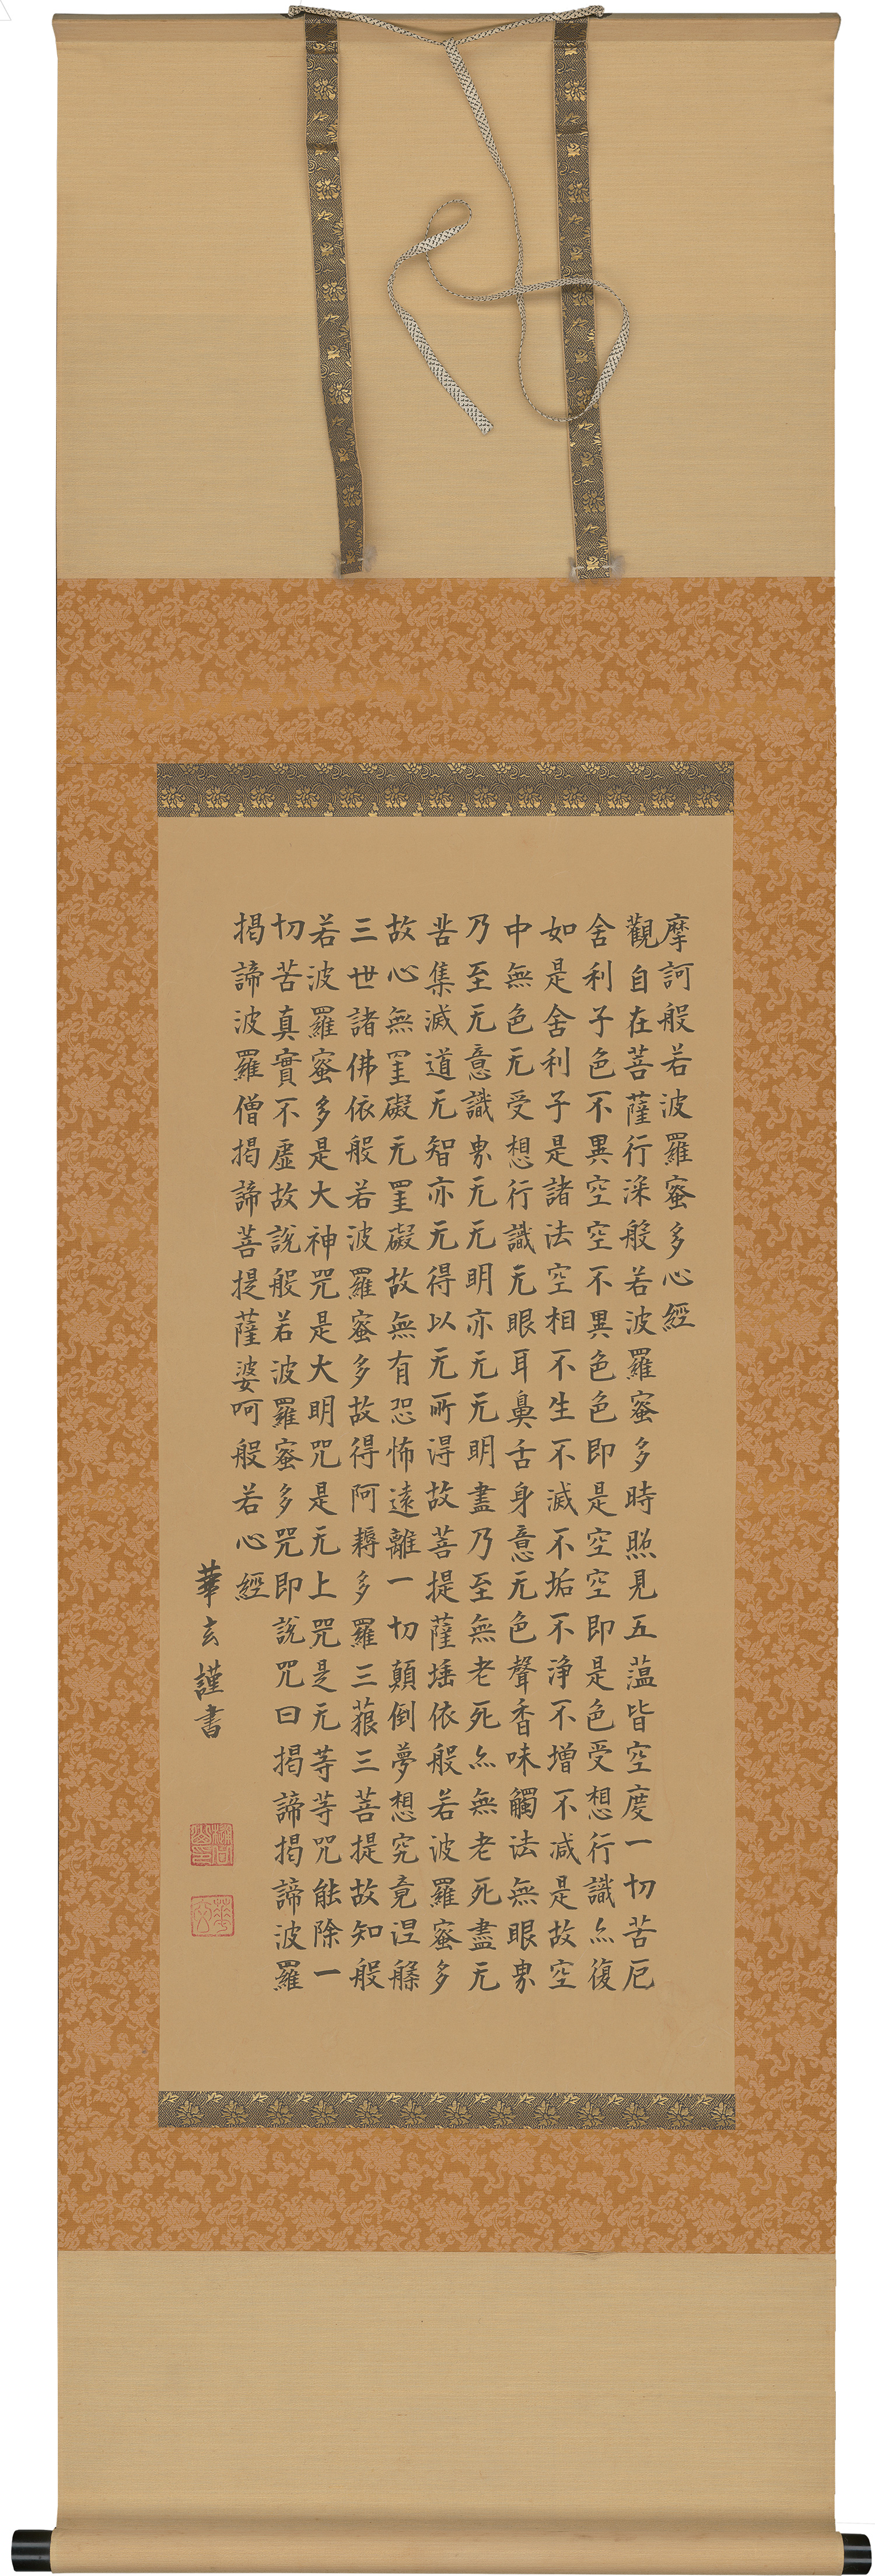 摩訶般若波羅蜜多心經
觀自在菩薩行深般若波羅蜜多時照見五薀皆空度一切苦厄
舍利子色不異空空不異色色即是空空即是色受想行識亦復
如是舍利子是諸法空相不生不滅不垢不淨不增不減是故空
中無色无受想行識无眼耳鼻舌身意无色聲香味觸法無眼界
乃至无意識界无无明亦无无明盡乃至無老死亦無老死盡无
苦集滅道无智亦无得以无所得故菩提薩埵依般若波羅蜜多
故心無罣礙无罣礙故無有恐怖遠離一切顛倒夢想究竟涅槃
三世諸佛依般若波羅蜜多故得阿耨多羅三藐三菩提故知般
若波羅蜜多是大神咒是大明咒是无上咒是无等等咒能除一
切苦真實不虛故說般若波羅蜜多咒即說咒曰揭諦揭諦波羅
揭諦波羅僧揭諦菩提薩婆呵般若心經
華玄謹書